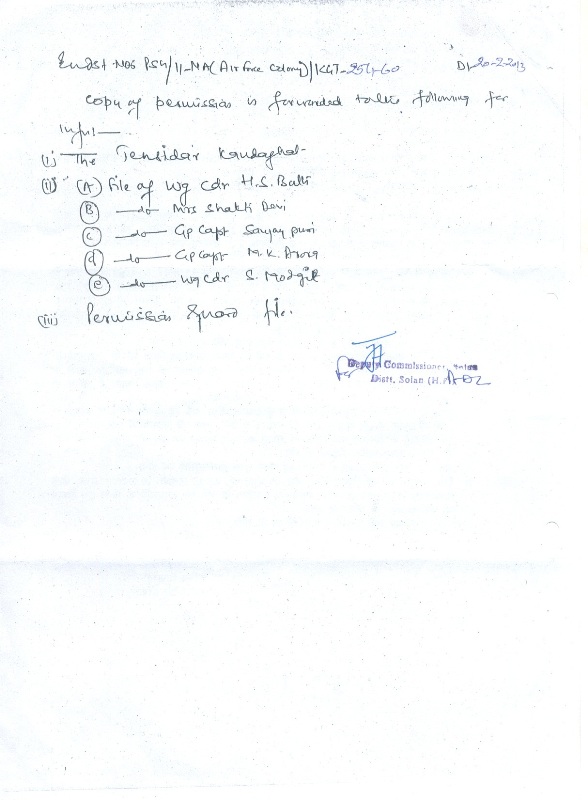 Endst. Nos PSN/11-NA (Air force Colony)/KGT-254-60 Dt 20-2-2013
copy of permission is forwarded to the following for
Inf.
(i) The Tensidar Kandaghat
(ii) (A) File of Wg Cdr H.S. Balti
(B) —do— Mrs Shakti Devi
(C) —do— GP Capt Sanjay puri
(d) —do— GP Capt M.K. Arora
(e) —do— Wg Cdr S. Modgil
(iii) Permission Guard file.
for
Deputy Commissioner, Solan
Distt. Solan (H.P.)